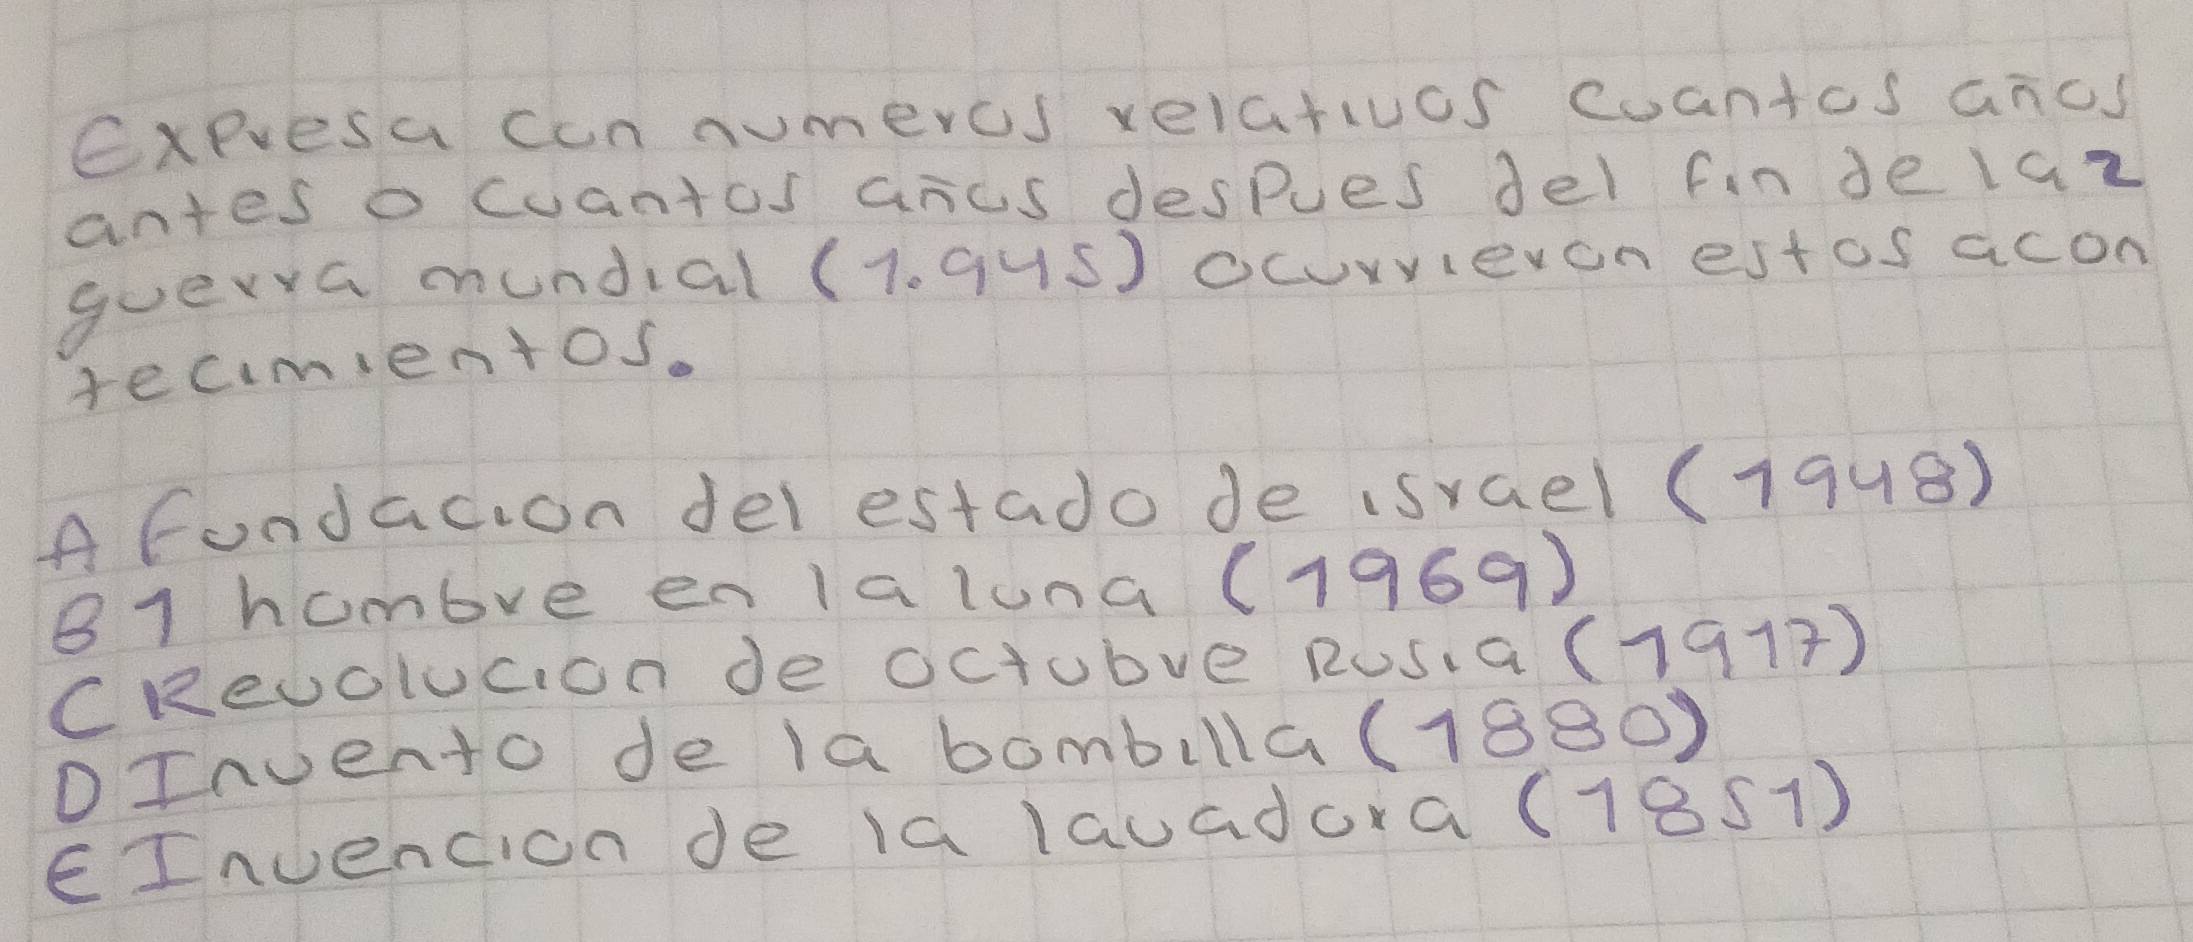 Expresa con numeros relativos cuantos años
antes o cuantos años despues del fin de la 2
guerra mundial (1.945) ocurrieron estos acon
tecimientos.
A fundacion del estado de israel (1948)
B 1 hombre en la luna (1969)
C Revolucion de octubre Rusia (1917)
D Invento de la bombilla (1880)
E Invencion de la lavadora (1851)